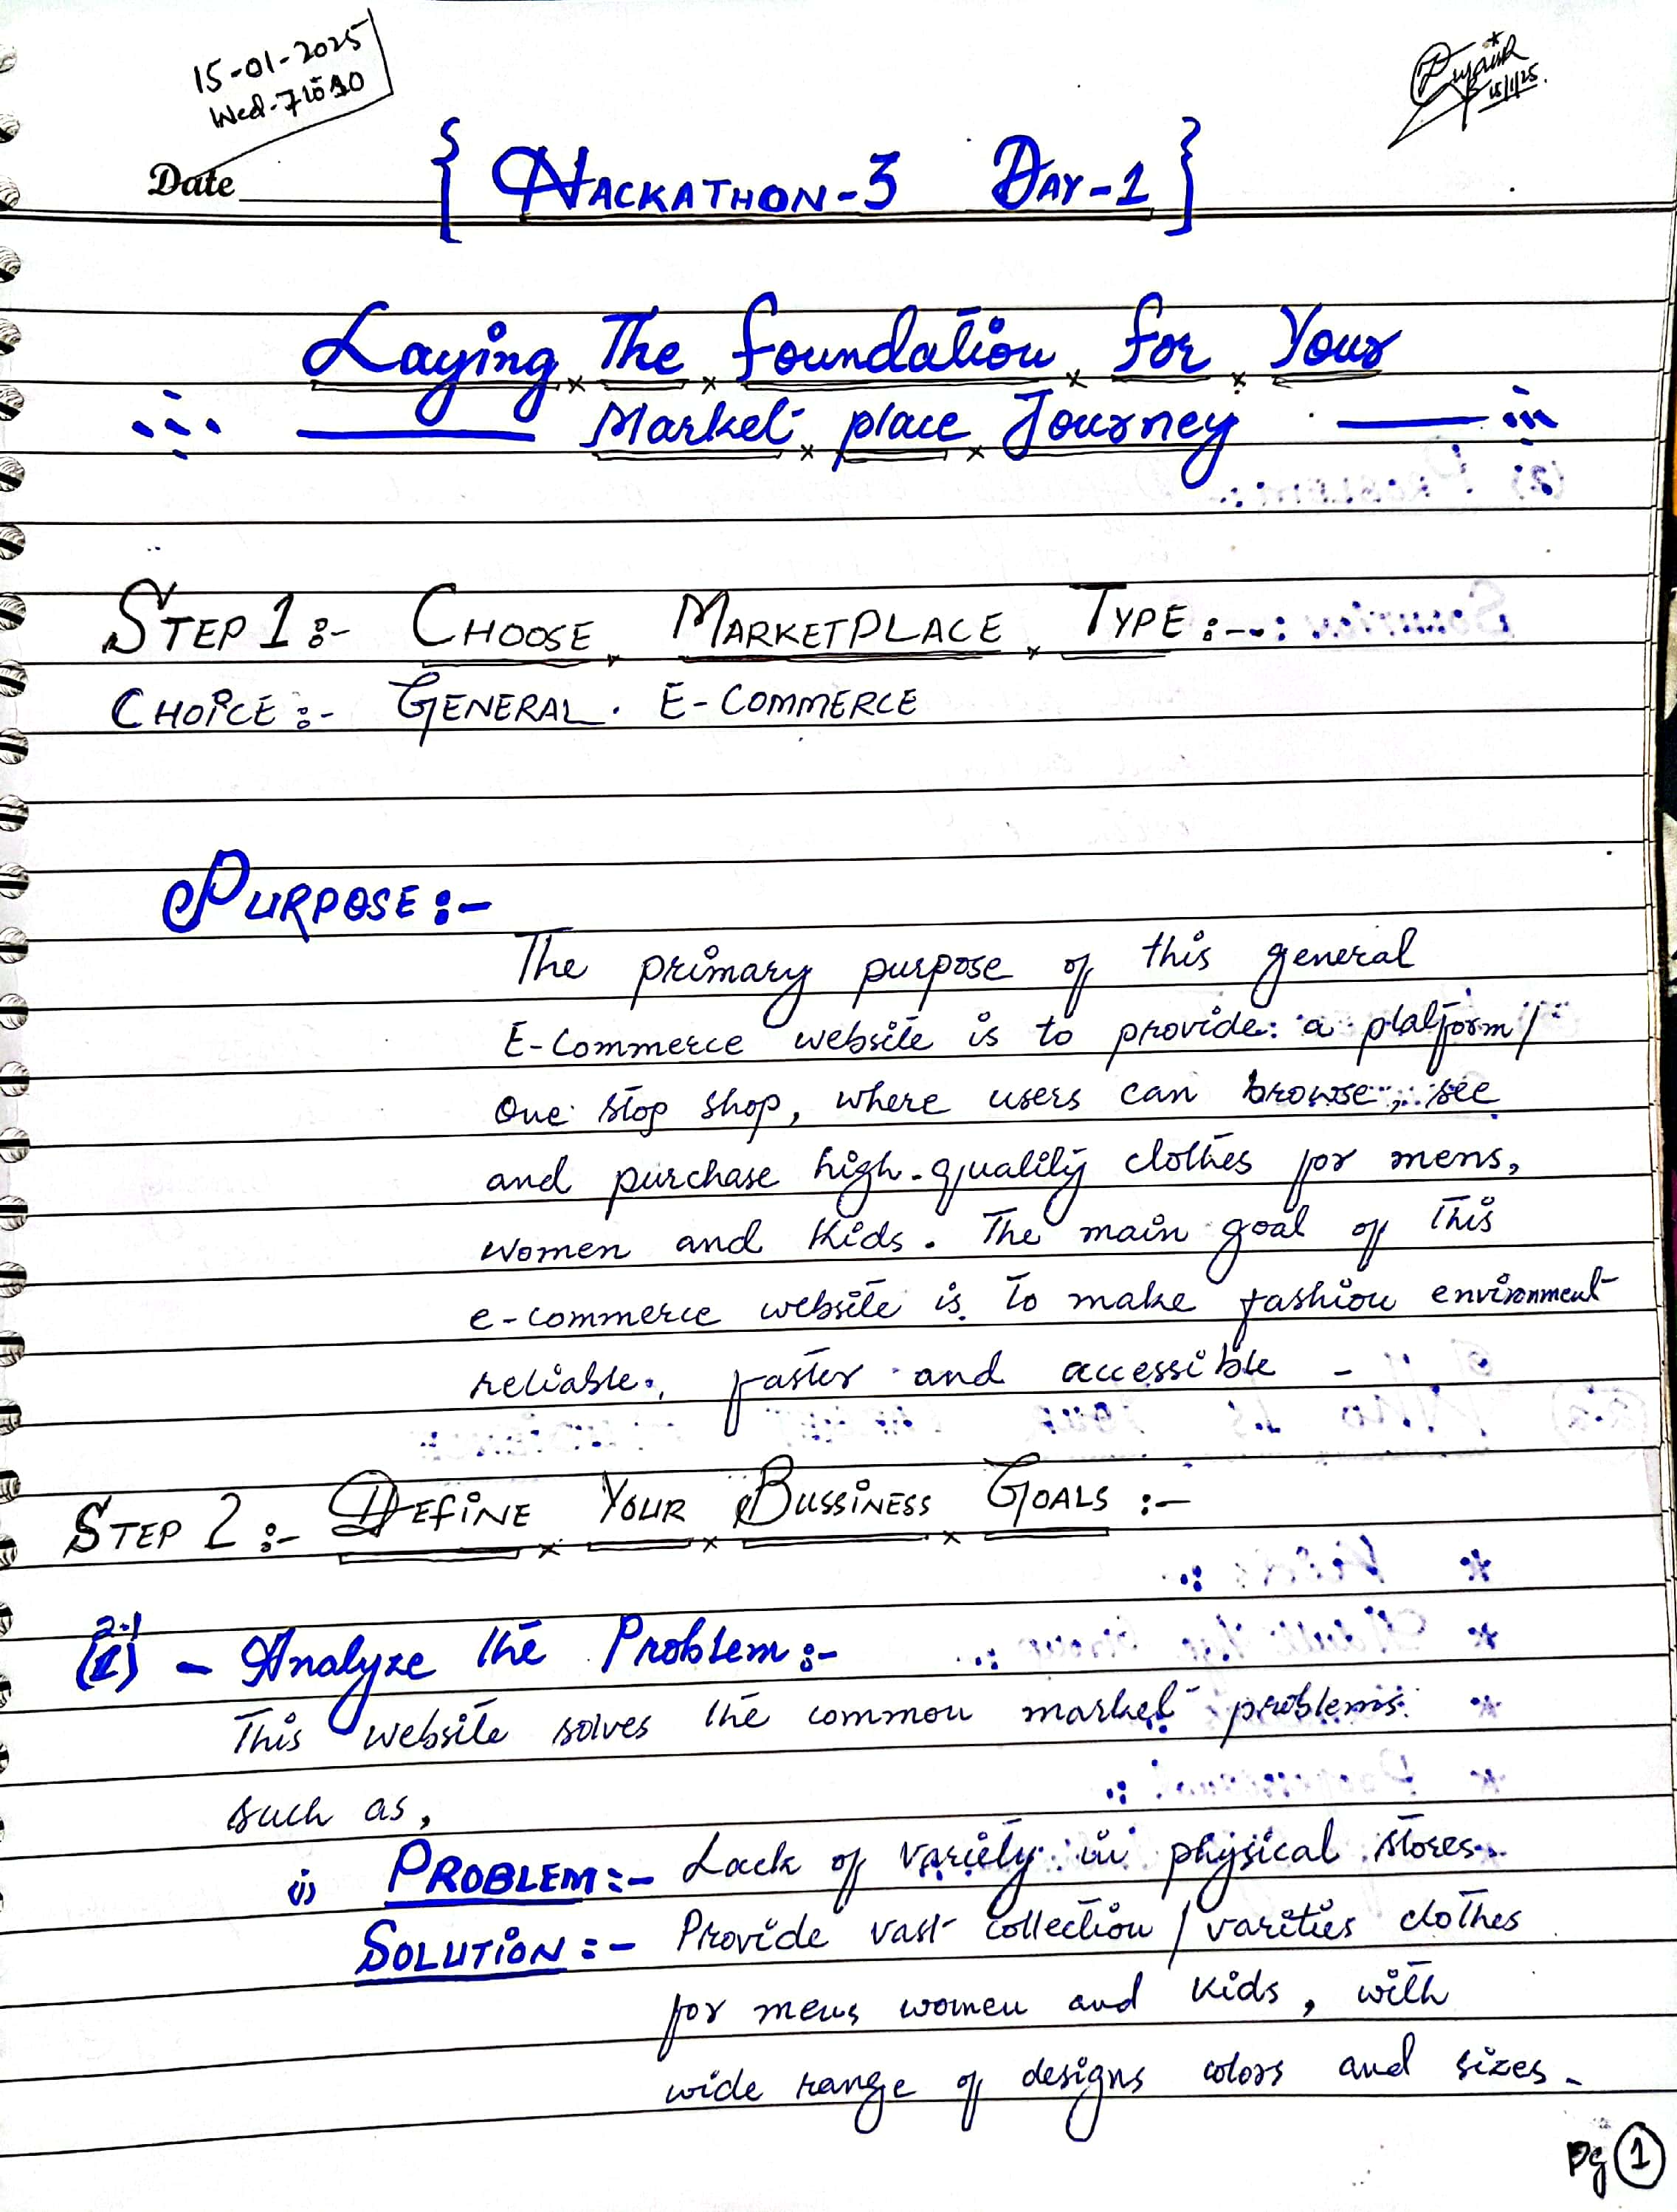 15-01-2025
Wed-7 to 10
15/1/25.
Date
{ HACKATHON-3 DAY-1 }
Laying The foundation for Your
Market place Journey
STEP 1:- CHOOSE MARKETPLACE TYPE:--
CHOICE:- GENERAL E-COMMERCE
PURPOSE:-
The primary purpose of this general
E-Commerce website is to provide a platform/
One stop shop, where users can browse, see
and purchase high-quality clothes for mens,
women and Kids. The main goal of this
e-commerce website is to make fashion environment
reliable, faster and accessible -
STEP 2:- DEFINE YOUR BUSSINESS GOALS :-
2.1 - Analyze the Problem:-
This website solves the common market problems
such as,
i) PROBLEM:- Lack of variety in physical stores.
SOLUTION:- Provide vast collection / varities clothes
for mens women and kids, with
wide range of designs colors and sizes.
Pg 1